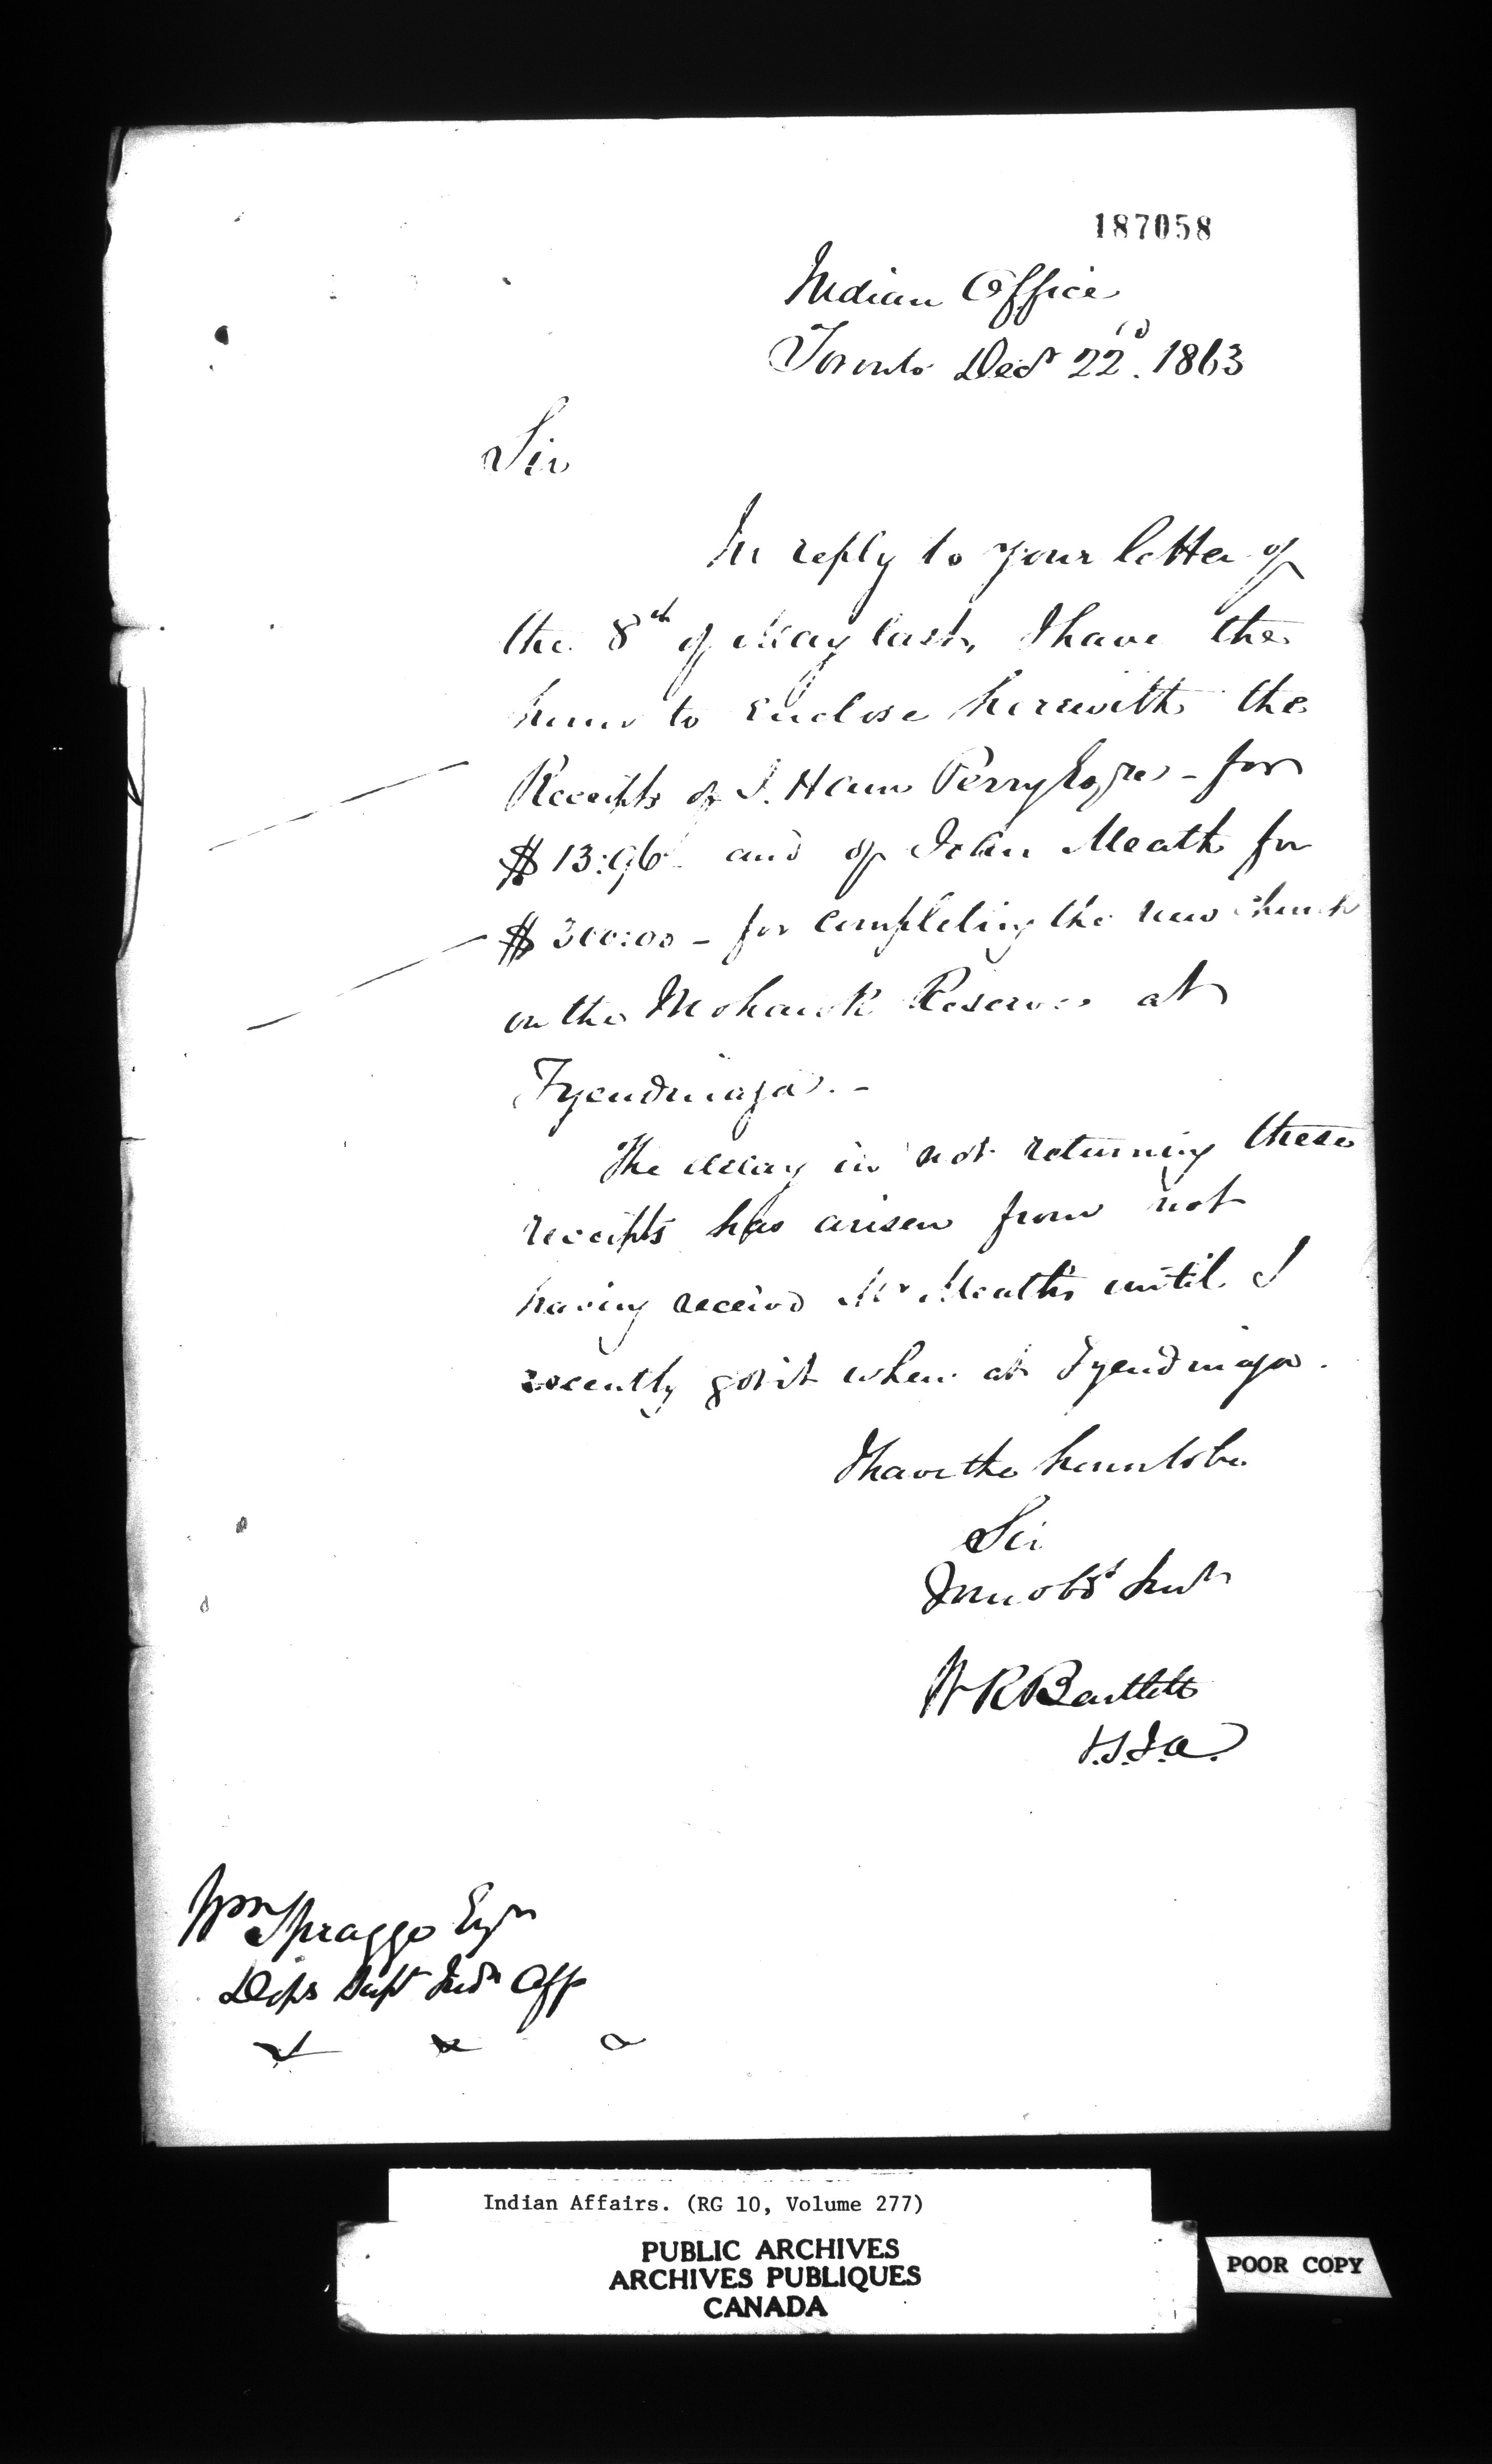 187058
Indian Office
Toronto Decr 22d. 1863
Sir
In reply to your letter of
the 8th of May last, I have the
honor to enclose herewith the
Receipts of J. Ham Perry Esqre - for
$13:96 and of John Meath for
$300:00 - for completing the new church
on the Mohawk Reserve at
Tyendinaga. -
The delay in not returning these
receipts has arisen from not
having received Mr Meath's until I
recently got it when at Tyendinaga.
I have the honor to be
Sir
Your obdt Servt
W R Bartlett
V.S.I.A.
Wm Spragge Esqr
Depy Supt Indn Aff
Indian Affairs. (RG 10, Volume 277)
PUBLIC ARCHIVES
ARCHIVES PUBLIQUES
CANADA
POOR COPY